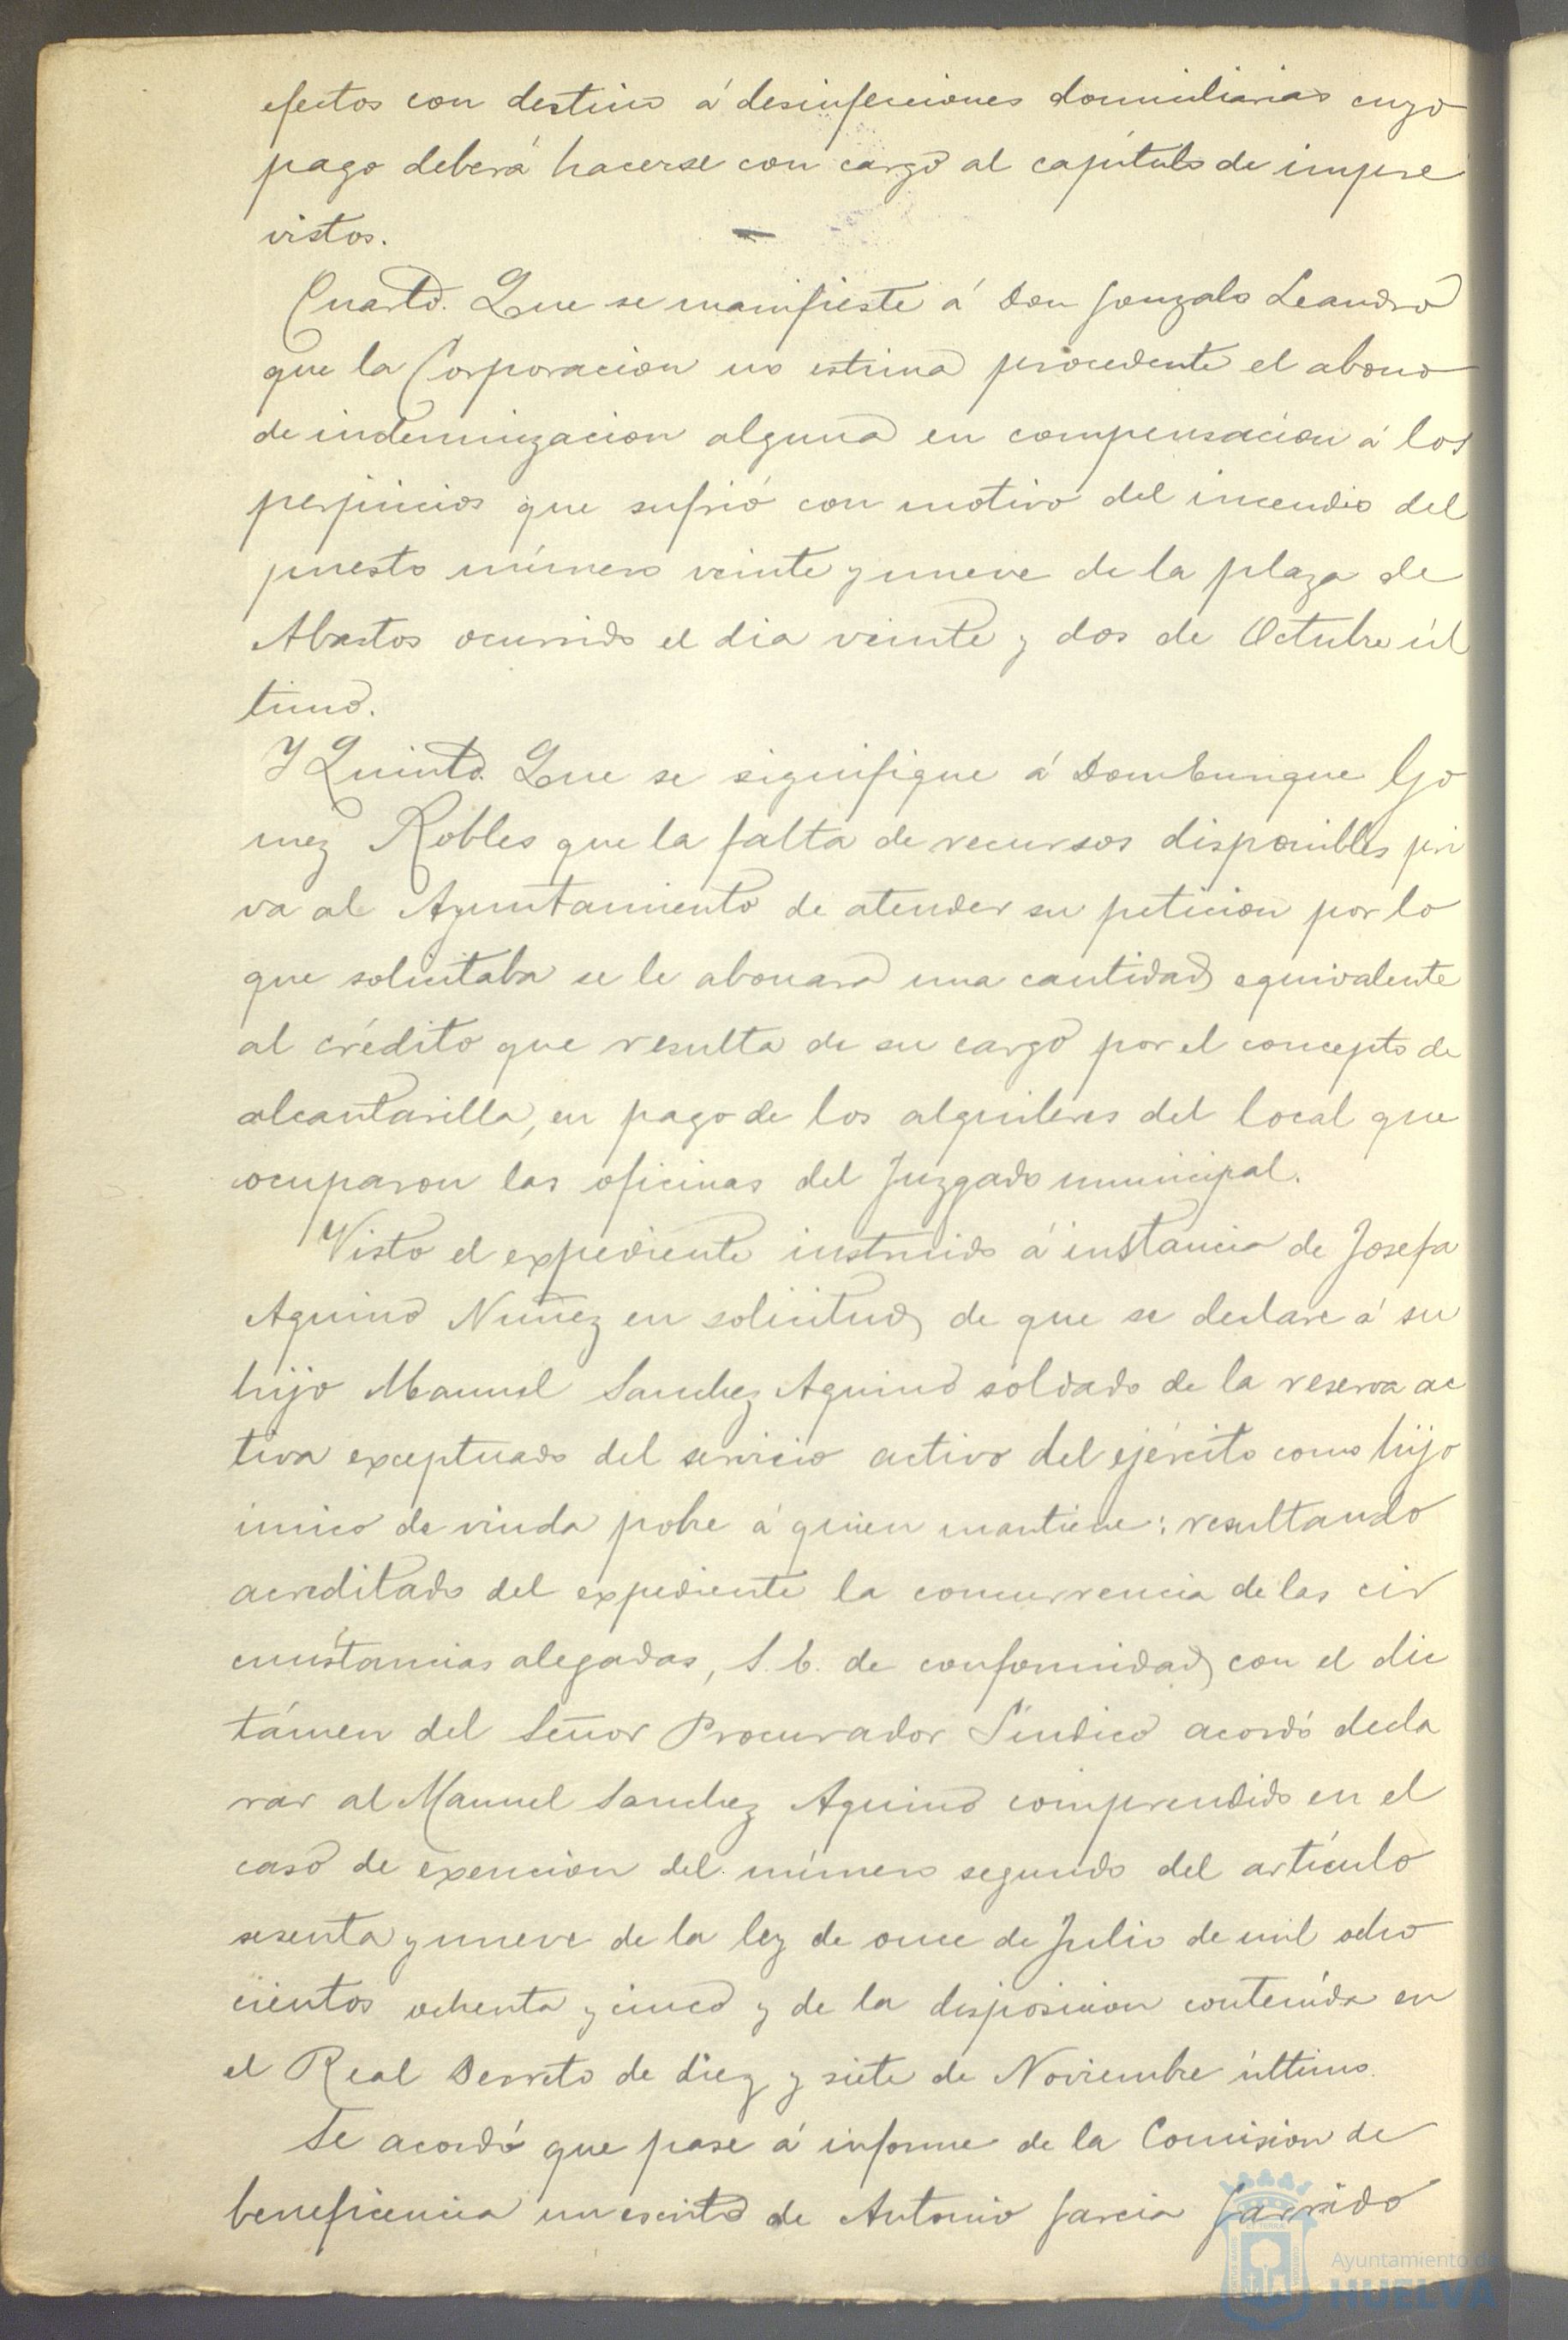 efectos con destino á desinfecciones domiciliarias cuyo
pago deberá hacerse con cargo al capítulo de impre
vistos.
Cuarto. Que se manifieste á Don Gonzalo Leandro
que la Corporacion no estima procedente el abono
de indemnizacion alguna en compensacion á los
perjuicios que sufrió con motivo del incendio del
puesto número veinte y nueve de la plaza de
Abastos ocurrido el dia veinte y dos de Octubre úl
timo.
Y Quinto. Que se signifique á Don Enrique Go
mez Robles que la falta de recursos disponibles pri
va al Ayuntamiento de atender su peticion por lo
que solicitaba se le abonara una cantidad equivalente
al crédito que resulta de su cargo por el concepto de
alcantarilla, en pago de los alquileres del local que
ocuparon las oficinas del Juzgado municipal.
Visto el expediente instruido á instancia de Josefa
Aquino Nuñez en solicitud de que se declare á su
hijo Manuel Sanchez Aquino soldado de la reserva ac
tiva exceptuado del servicio activo del ejército como hijo
único de viuda pobre á quien mantiene: resultando
acreditado del expediente la concurrencia de las cir
cunstancias alegadas, S. E. de conformidad con el dic
támen del Señor Procurador Síndico acordó decla
rar al Manuel Sanchez Aquino comprendido en el
caso de exencion del número segundo del artículo
sesenta y nueve de la ley de once de Julio de mil ocho
cientos ochenta y cinco y de la disposicion contenida en
el Real Decreto de diez y siete de Noviembre último.
Se acordó que pase á informe de la Comision de
beneficencia un escrito de Antonio Garcia Garrido
Ayuntamiento de
HUELVA